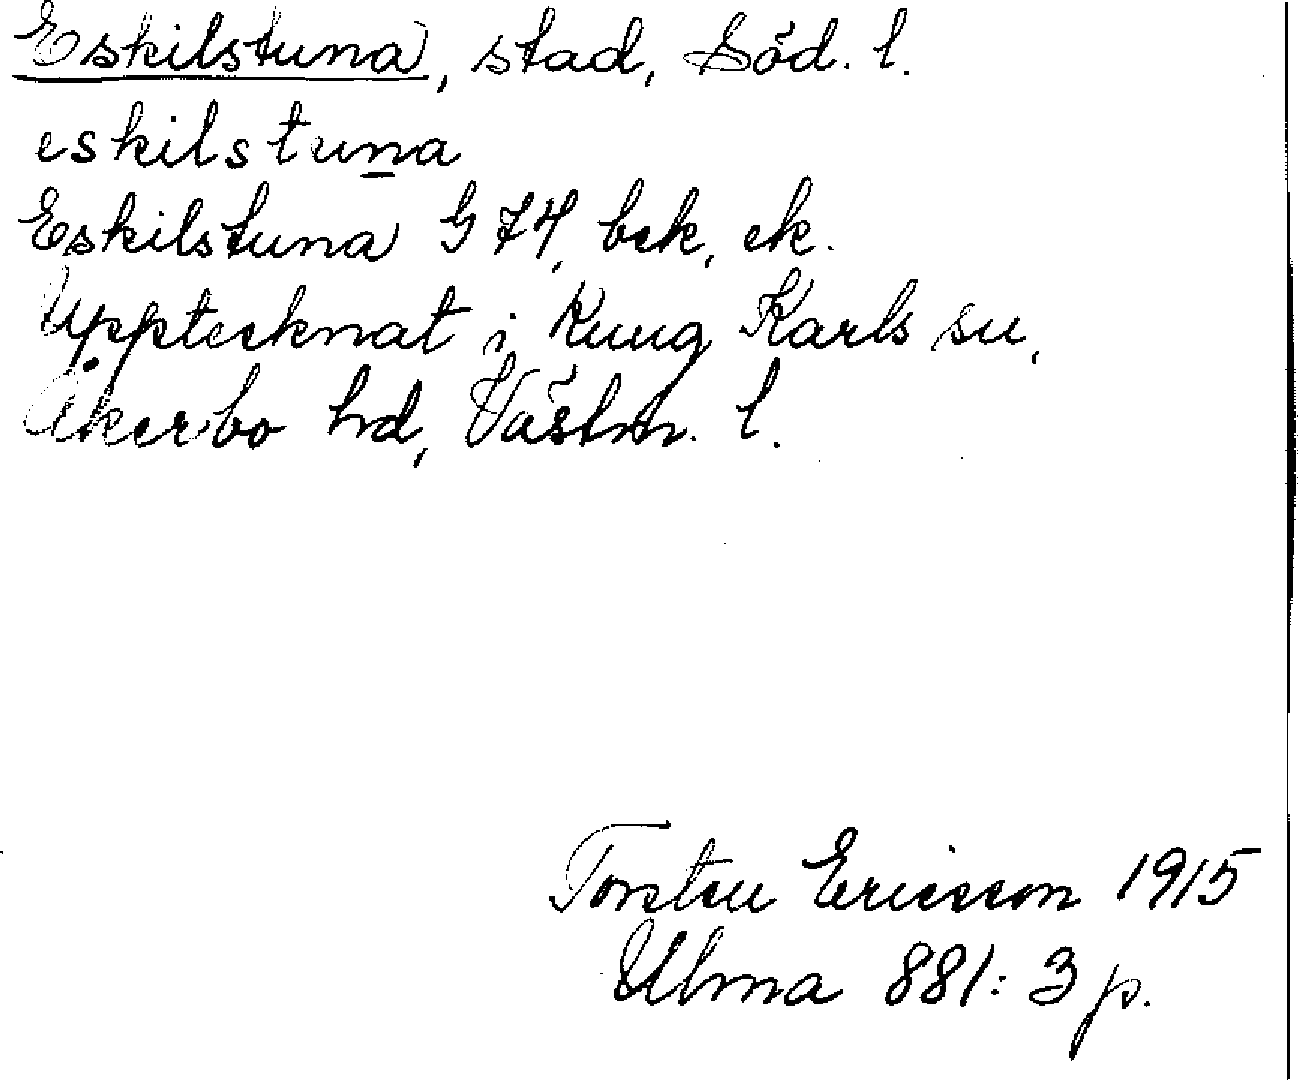 Eskilstuna, stad, Söd. l.
eskilstuna
Eskilstuna G 74, bek, ek.
Upptecknat i Kung Karls sn,
Åkerbo hd, Västm. l.
Torsten Ericsson 1915
Ulma 881: 3 p.